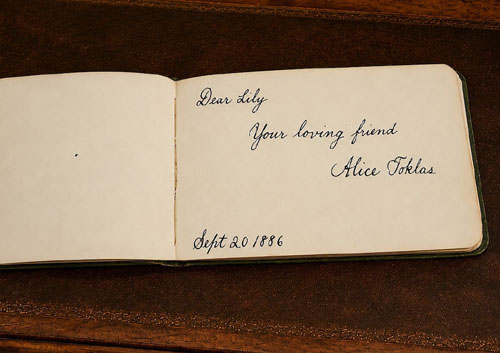 Dear Lily
Your loving friend
Alice Toklas
Sept 20 1886